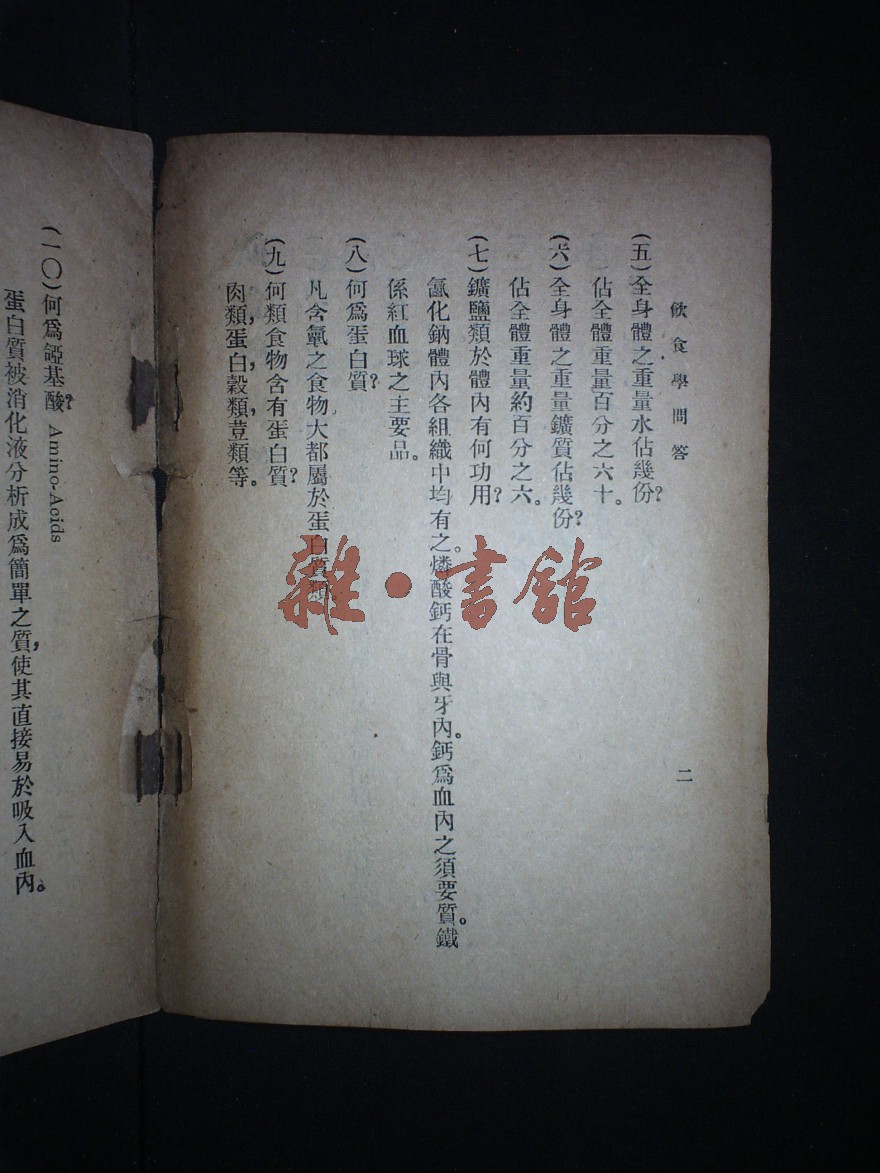 飲食學問答
二
(五)全身體之重量水佔幾份?
佔全體重量百分之六十。
(六)全身體之重量鑛質佔幾份?
佔全體重量約百分之六。
(七)鑛鹽類於體內有何功用?
氯化鈉體內各組織中均有之。燐酸鈣在骨與牙內。鈣爲血內之須要質。鐵
係紅血球之主要品。
(八)何爲蛋白質?
凡含氮之食物大都屬於蛋白質類
(九)何類食物含有蛋白質?
肉類,蛋白,穀類,荳類等。
(一〇)何爲𨧀基酸? Amino-Acids
蛋白質被消化液分析成爲簡單之質,使其直接易於吸入血內。
雜·書館